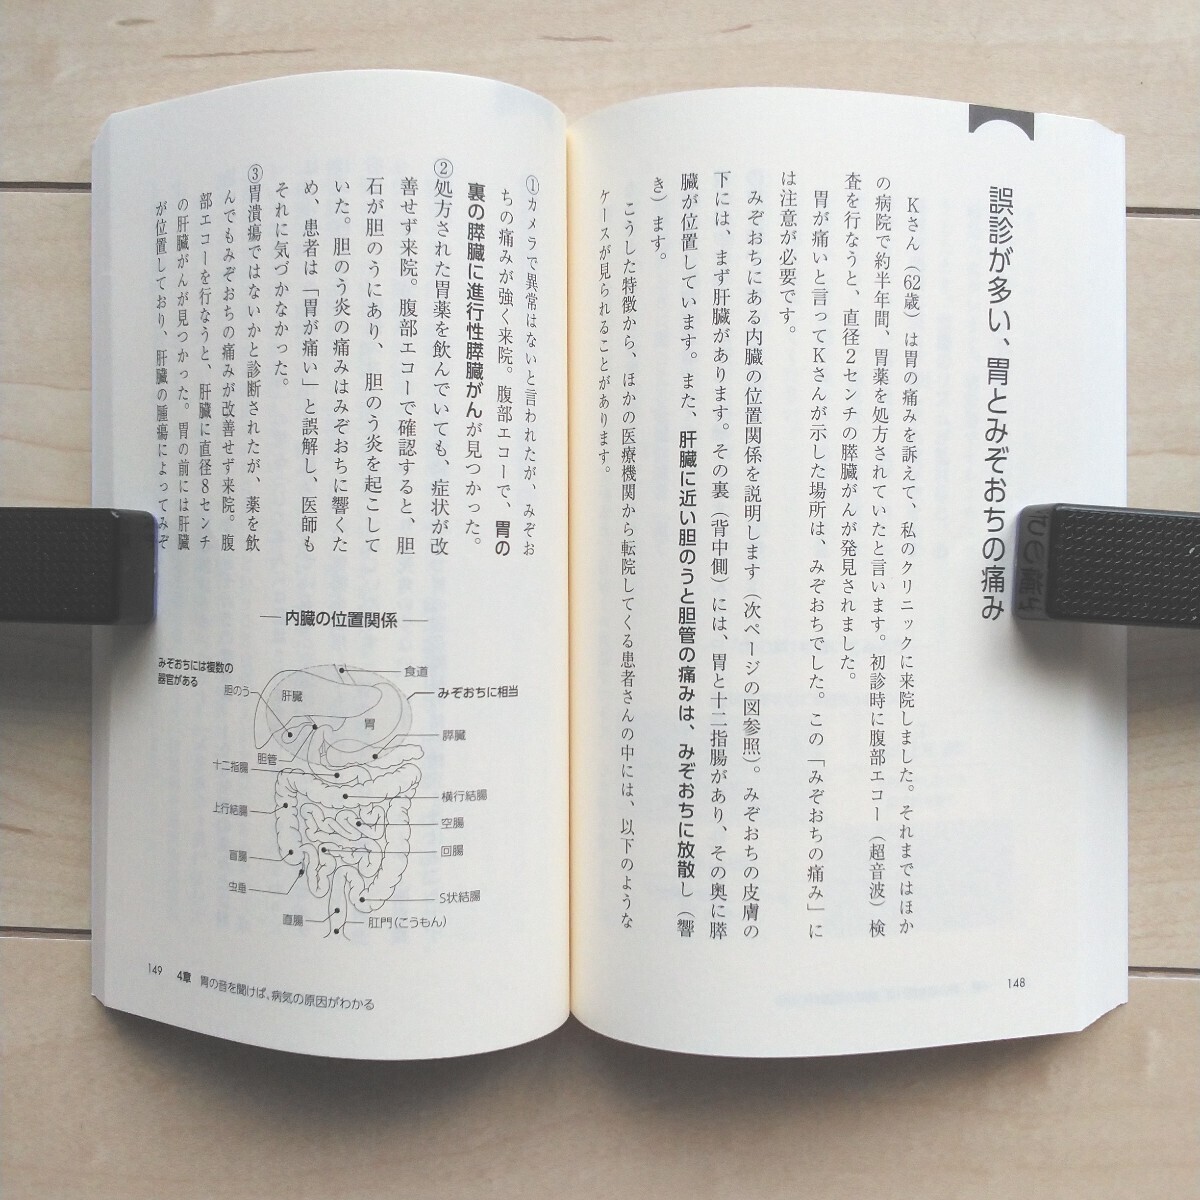 誤診が多い、胃とみぞおちの痛み
Kさん（62歳）は胃の痛みを訴えて、私のクリニックに来院しました。それまではほか
の病院で約半年間、胃薬を処方されていたと言います。初診時に腹部エコー（超音波）検
査を行なうと、直径2センチの膵臓がんが発見されました。
胃が痛いと言ってKさんが示した場所は、みぞおちでした。この「みぞおちの痛み」に
は注意が必要です。
みぞおちにある内臓の位置関係を説明します（次ページの図参照）。みぞおちの皮膚の
下には、まず肝臓があります。その裏（背中側）には、胃と十二指腸があり、その奥に膵
臓が位置しています。また、肝臓に近い胆のうと胆管の痛みは、みぞおちに放散し（響
き）ます。
こうした特徴から、ほかの医療機関から転院してくる患者さんの中には、以下のような
ケースが見られることがあります。
148
①カメラで異常はないと言われたが、みぞお
ちの痛みが強く来院。腹部エコーで、胃の
裏の膵臓に進行性膵臓がんが見つかった。
②処方された胃薬を飲んでいても、症状が改
善せず来院。腹部エコーで確認すると、胆
石が胆のうにあり、胆のう炎を起こして
いた。胆のう炎の痛みはみぞおちに響くた
め、患者は「胃が痛い」と誤解し、医師も
それに気づかなかった。
③胃潰瘍ではないかと診断されたが、薬を飲
んでもみぞおちの痛みが改善せず来院。腹
部エコーを行なうと、肝臓に直径8センチ
の肝臓がんが見つかった。胃の前には肝臓
が位置しており、肝臓の腫瘍によってみぞ
内臓の位置関係
みぞおちには複数の
器官がある
食道
みぞおちに相当
胆のう
肝臓
胃
膵臓
胆管
十二指腸
横行結腸
上行結腸
空腸
盲腸
回腸
虫垂
S状結腸
直腸
肛門（こうもん）
149 4章 胃の音を聞けば、病気の原因がわかる